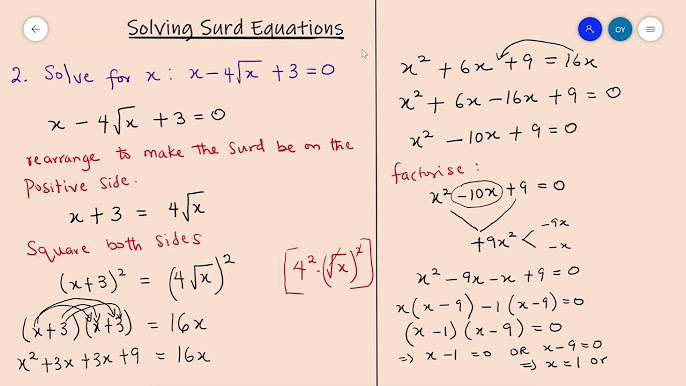 Solving Surd Equations
OY
2. Solve for x : x - 4√x + 3 = 0
x - 4√x + 3 = 0
rearrange to make the surd be on the
Positive side.
x + 3 = 4√x
Square both sides
(x+3)² = (4√x)²
[4² · (√x)²]
(x+3)(x+3) = 16x
x² + 3x + 3x + 9 = 16x
x² + 6x + 9 = 16x
x² + 6x - 16x + 9 = 0
x² - 10x + 9 = 0
factorise :
x² - 10x + 9 = 0
+9x² < -9x
-x
x² - 9x - x + 9 = 0
x(x-9) -1(x-9) = 0
(x-1)(x-9) = 0
⇒ x-1 = 0 OR x-9 = 0
⇒ x = 1 or